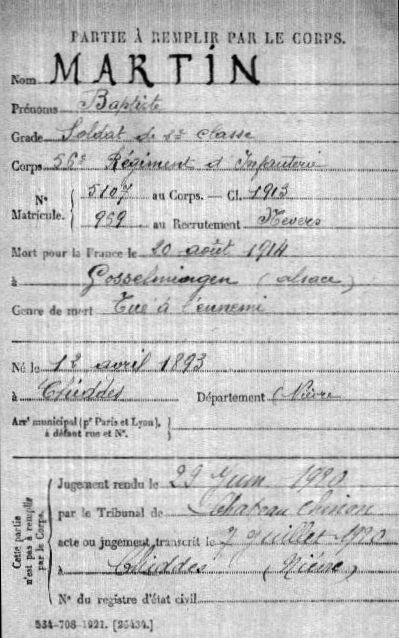 PARTIE À REMPLIR PAR LE CORPS.
Nom MARTIN
Prénoms Baptiste
Grade Soldat de 2e classe
Corps 56e Régiment d'Infanterie
N° Matricule. { 5107 au Corps. — Cl. 1913
969 au Recrutement Nevers
Mort pour la France le 20 août 1914
à Gosselmingen (alsace)
Genre de mort Tué à l'ennemi
Né le 12 avril 1893
à Chiddes Département Nièvre
Arrt municipal (pr Paris et Lyon), à défaut rue et N°. }
Cette partie n'est pas à remplir par le Corps.
Jugement rendu le 29 Juin 1920
par le Tribunal de Chateau Chinon
acte ou jugement transcrit le 7 Juillet 1920
à Chiddes (Nièvre)
N° du registre d'état civil
534-708-1921. [26434.]